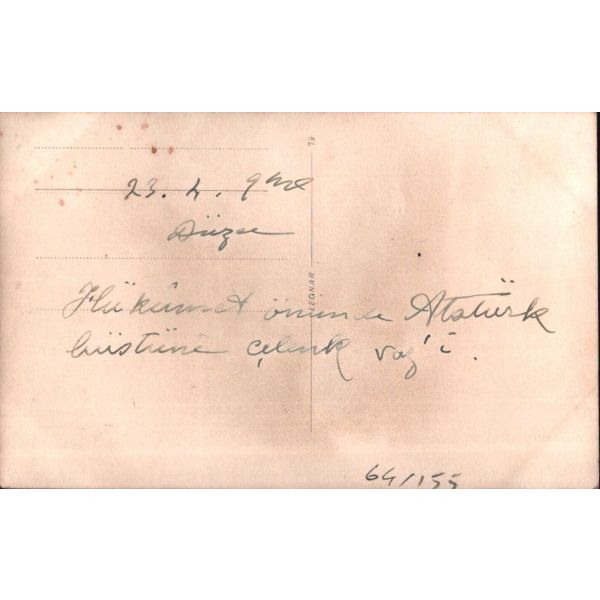 23. 4. 9
Düzce
Hükûmet önünde Atatürk
büstüne çelenk vaz'i.
64/155
79
LEGNAR